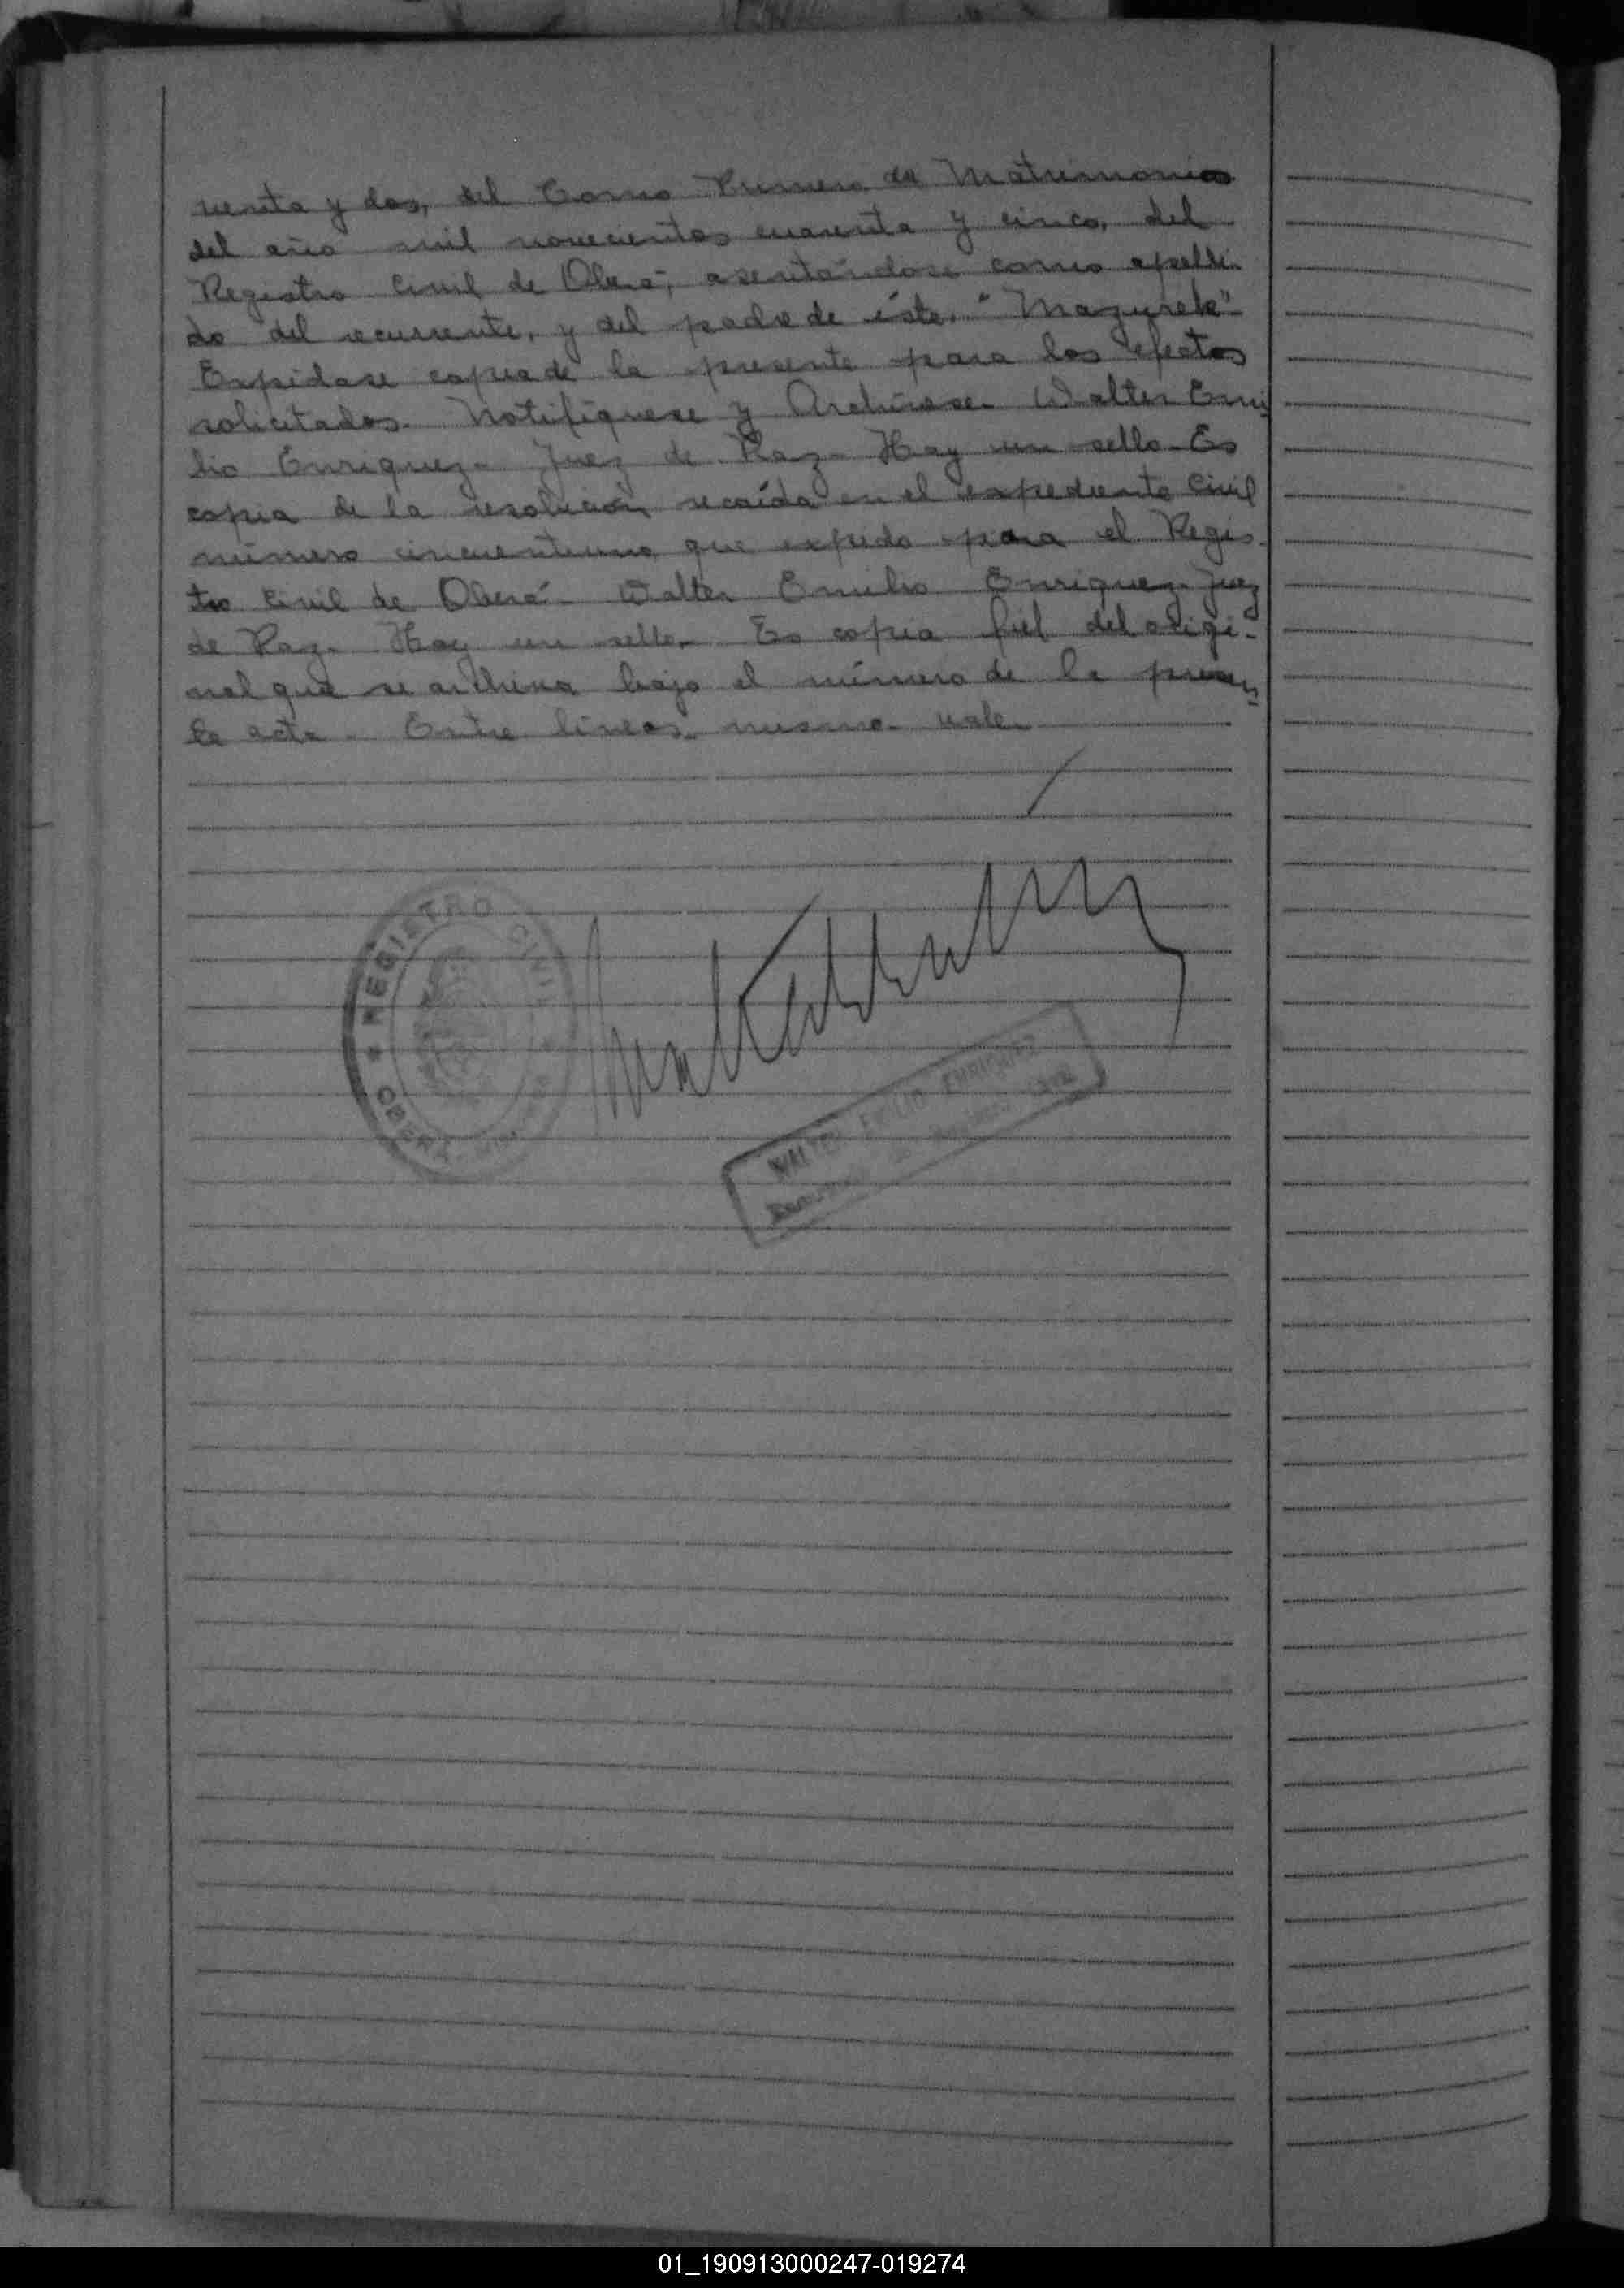 venta y dos, del Tomo Primero de Matrimonios
del año mil novecientos cuarenta y cinco, del
Registro Civil de Oberá, asentándose como apelli-
do del recurrente, y del padre de éste, "Mazurek"-
Expídase copia de la presente para los efectos
solicitados. Notifíquese y Archívese. Walter Emi-
lio Enriquez- Juez de Paz- Hay un sello- Es
copia de la resolución recaída en el expediente Civil
número cincuentiuno, que expido para el Regis-
tro Civil de Oberá- Walter Emilio Enriquez- Juez
de Paz- Hay un sello- Es copia fiel del origi-
nal que se archiva bajo el número de la presen-
te acta- Entre líneas, mismo- vale-
REGISTRO CIVIL
OBERÁ
WALTER EMILIO ENRIQUEZ
01_190913000247-019274